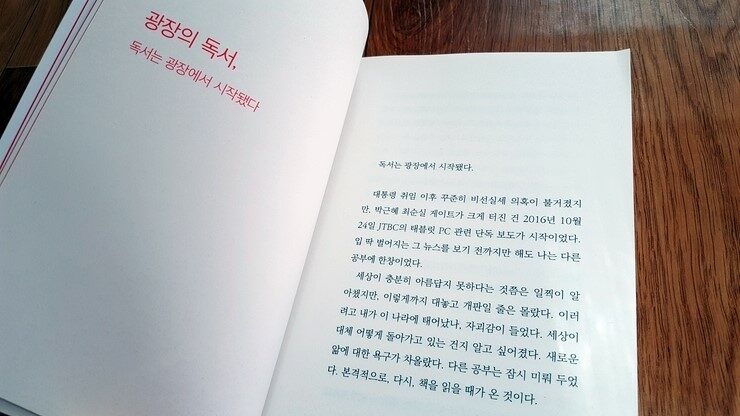 광장의 독서,
독서는 광장에서 시작됐다
독서는 광장에서 시작됐다.
대통령 취임 이후 꾸준히 비선실세 의혹이 불거졌지
만, 박근혜 최순실 게이트가 크게 터진 건 2016년 10월
24일 JTBC의 태블릿 PC 관련 단독 보도가 시작이었다.
입 딱 벌어지는 그 뉴스를 보기 전까지만 해도 나는 다른
공부에 한창이었다.
세상이 충분히 아름답지 못하다는 것쯤은 일찍이 알
아챘지만, 이렇게까지 대놓고 개판일 줄은 몰랐다. 이러
려고 내가 이 나라에 태어났나, 자괴감이 들었다. 세상이
대체 어떻게 돌아가고 있는 건지 알고 싶어졌다. 새로운
앎에 대한 욕구가 차올랐다. 다른 공부는 잠시 미뤄 두었
다. 본격적으로, 다시, 책을 읽을 때가 온 것이다.